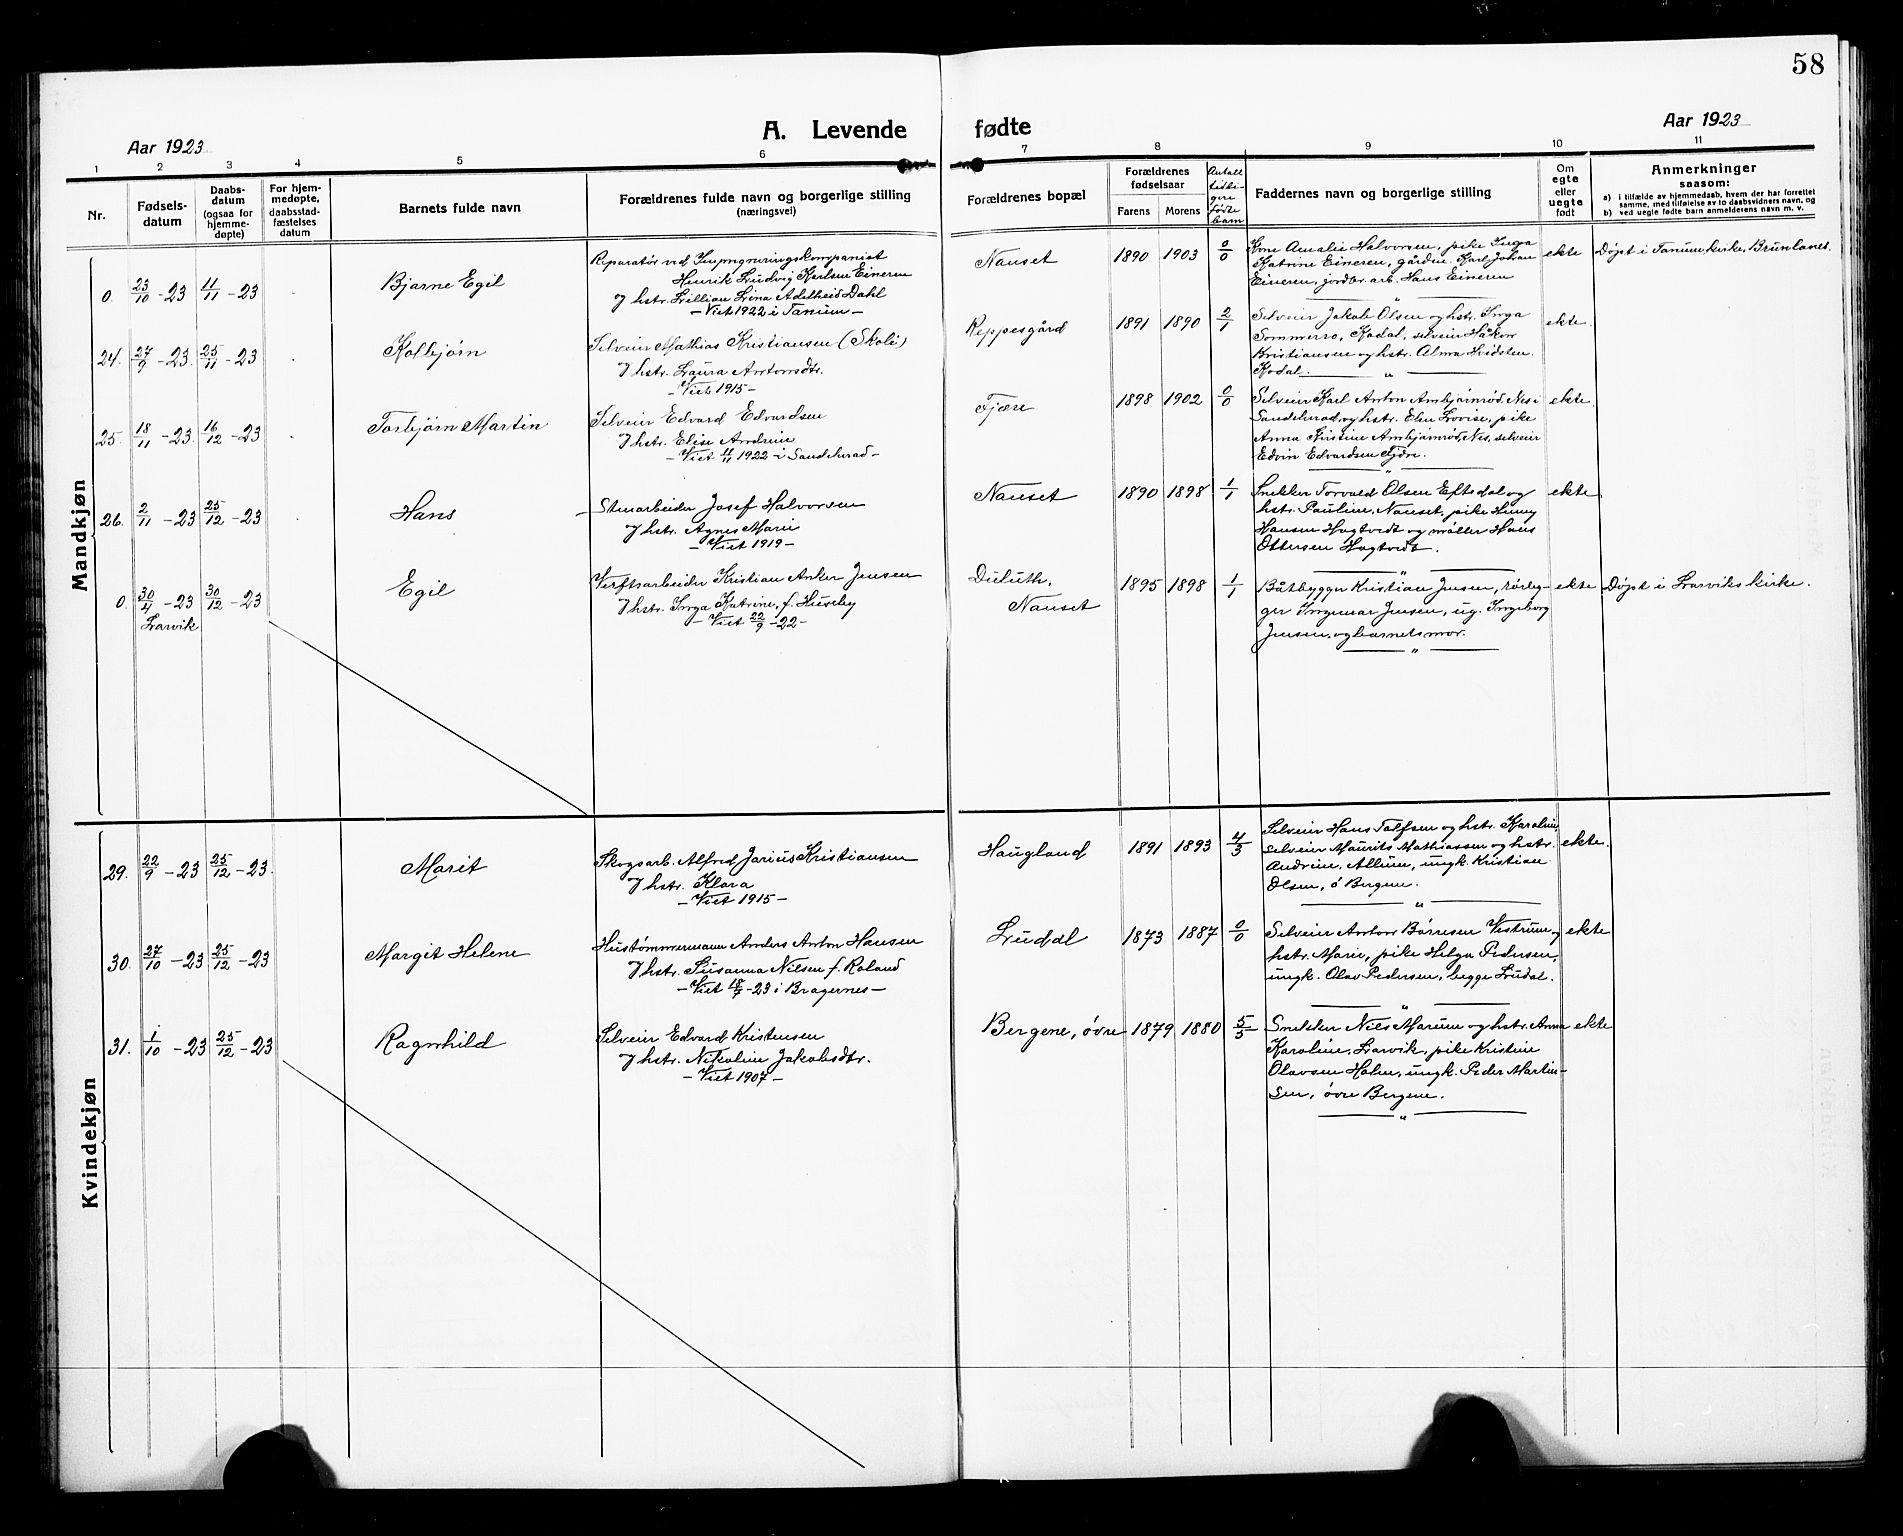 58
Aar 1923
A. Levende fødte
Aar 1923
1 2 3 4 5 6 7 8 9 10 11
Nr.
Fødsels-
datum
Daabs-
datum
(ogsaa for
hjemme-
døpte)
For hjem-
medøpte,
daabsstad-
fæstelses
datum
Barnets fulde navn
Forældrenes fulde navn og borgerlige stilling
(næringsvei)
Forældrenes bopæl
Forældrenes
fødselsaar
Farens Morens
Antall
tidli-
gere
fødte
barn
Faddernes navn og borgerlige stilling
Om
egte
eller
uegte
født
Anmerkninger
saasom:
a) i tilfælde av hjemmedaab, hvem der har forrettet
samme, med tilføielse av to daabsvidners navn, og
b) ved uegte fødte barn anmelderens navn m. v.
Mandkjøn
0. 23/10 - 23 11/11 - 23
Bjarne Egil
Reparatør ved Impregneringskompaniet
Henrik Ludvig Karlsen Eineren
og hstr. Lillian Lina Adelheid Dahl
- Viet 1922 i Tanum -
Nauset
1890 1903 0/0
Kone Amalie Halvorsen, pike Inga
Katrine Eineren, gårdm. Karl Johan
Eineren, jordbr. arb. Hans Eineren
ekte
Døpt i Tanum kirke, Brunlanes.
24. 27/9 - 23 25/11 - 23
Kolbjørn
Selveier Mathias Kristiansen (Skoli)
og hstr. Laura Antonsdtr.
- Viet 1915 -
Reppesgård
1891 1890 2/1
Selveier Jakob Olsen og hstr. Inga
Sommerro, Kodal, selveier Håkon
Kristiansen og hstr. Alma Hvidsten
Kodal.
ekte.
25. 18/11 - 23 16/12 - 23
Torbjørn Martin
Selveier Edvard Edvardsen
og hstr. Elise Andrine
- Viet 11/11 1922 i Sandeherad -
Fjære
1898 1902 0/0
Selveier Karl Anton Ambjørnrød, Nes i
Sandeherad, og hstr. Elen Lovise, pike
Anna Kristine Ambjørnrød, Nes, selveier
Edvin Edvardsen Fjære.
ekte.
26. 2/11 - 23 25/12 - 23
Hans
Stenarbeider Josef Halvorsen
og hstr. Agnes Marie
- Viet 1919 -
Nauset
1890 1898 1/1
Snekker Torvald Olsen Eftedal og
hstr. Pauline, Nauset, pike Henny
Hansen Hagtvedt og møller Hans
Ottersen Hagtvedt.
ekte
0. 30/4 - 23 30/12 - 23
Larvik
Egil
Verftsarbeider Kristian Anker Jensen
og hstr. Inga Katrine, f. Huseby
- Viet 22/9 - 22 -
Duluth,
Nauset
1895 1898 1/1
Båtbygger Kristian Jensen, rørleg-
ger Ingemar Jensen, ug. Ingeborg
Jensen, og barnets mor.
ekte
Døpt i Larviks kirke.
Kvindekjøn
29. 22/9 - 23 25/12 - 23
Marit
Skogsarb. Alfred Jarius Kristiansen
og hstr. Klara
- Viet 1915 -
Haugland
1891 1893 4/3
Selveier Hans Tolfsen og hstr. Karoline,
selveier Maurits Mathiassen og hstr.
Andrine, Allum, ungk. Kristian
Olsen, ø Bergene.
ekte.
30. 27/10 - 23 25/12 - 23
Margit Helene
Hustømmermann Anders Anton Hansen
og hstr. Susanna Nilsen f. Roland
- Viet 15/7 - 23 i Bragernes -
Luddl
1873 1887 0/0
Selveier Anton Børresen Vestrum og
hstr. Marie, pike Helga Pedersen,
ungk. Olav Pedersen, begge Ludal.
ekte
31. 1/10 - 23 25/12 - 23
Ragnhild
Selveier Edvard Kristensen
og hstr. Nikoline Jakobsdtr.
- Viet 1907 -
Bergene, øvre
1879 1880 5/5
Snekker Niels Marum og hstr. Anna
Karoline, Larvik, pike Kristine
Olavsen Holm, ungk. Peder Martin-
sen, øvre Bergene.
ekte